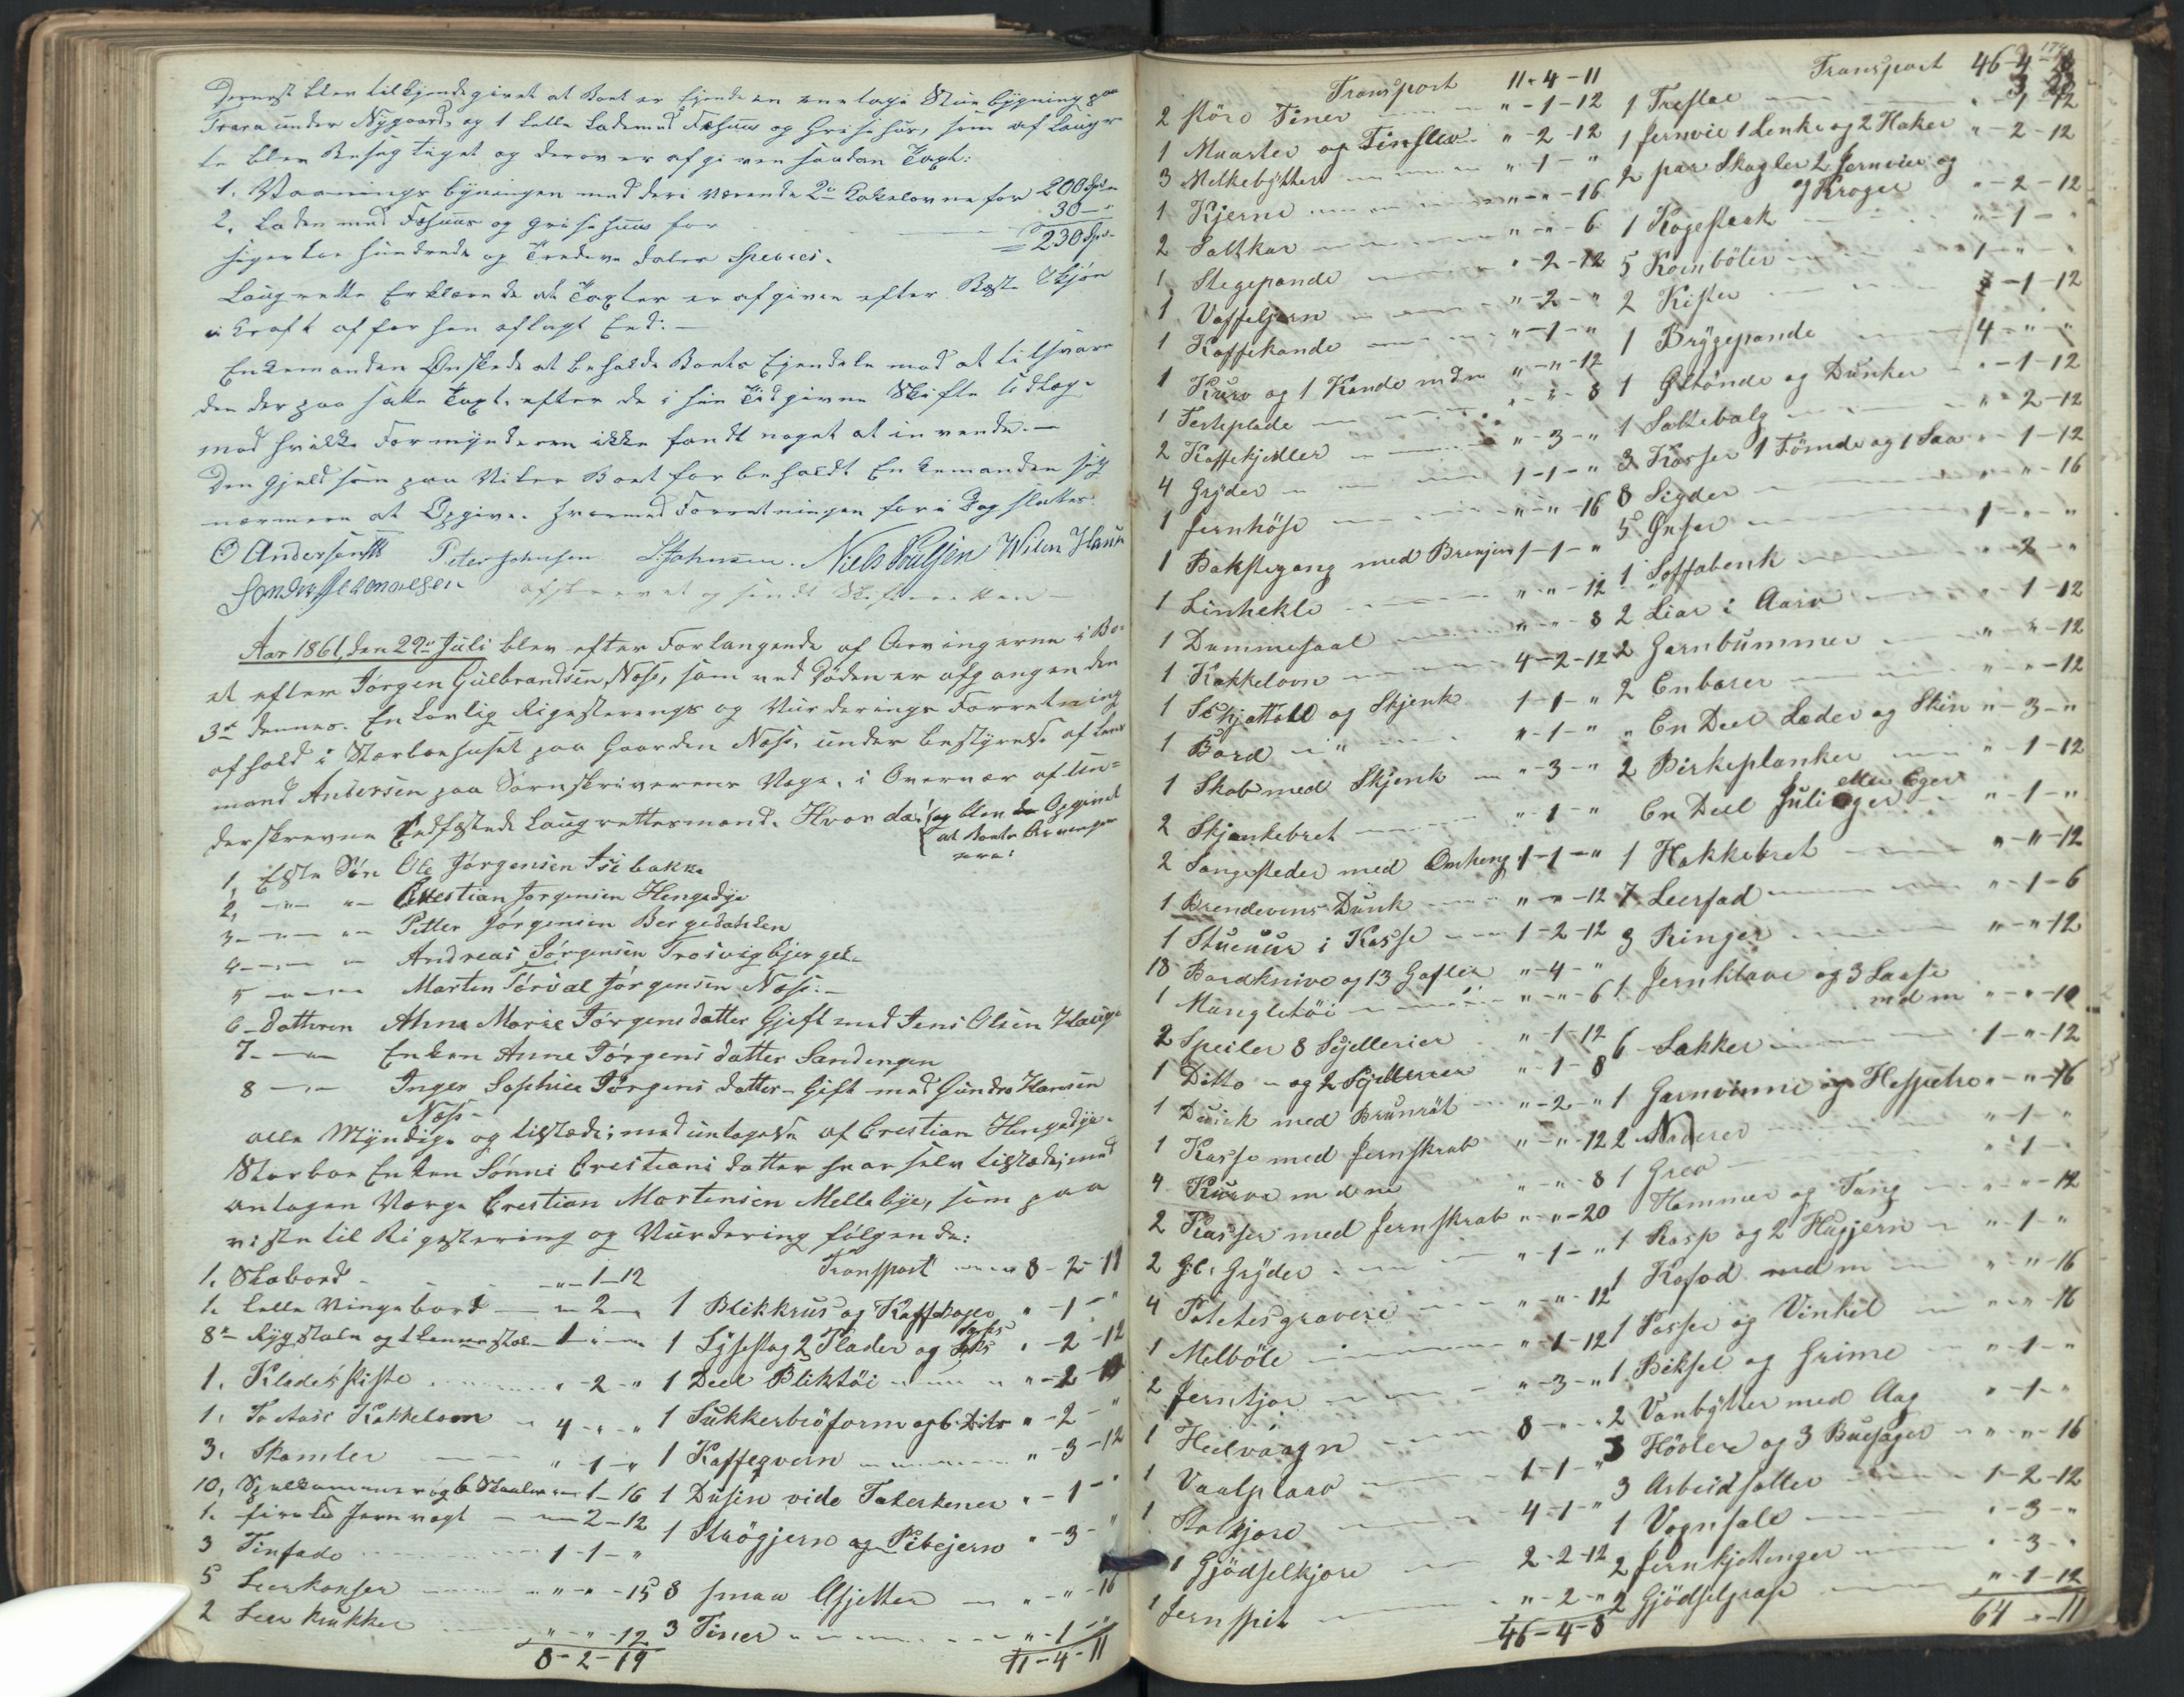 Dernæst blev tilkjendegivet at Boet er Eiende en een etage Stue bygning paa
Trara under Nygaard, og 1 Lelle Lade med Fæhuus og Grisehus, som af Laugret
te blev Besigtiget og derover afgiven saadan Taxt:
1. Vaanings bygningen med deri værende 2de Kakelovne for 200 Spd
2. Laden med Fæhuus og grisehuus for 30 — "
= 230 Spd.
siger to hundrede og Tredeve daler Species.
Laugrette Erklærede at Taxten er afgiven efter Beste Skjøn
i Kraft af før hen aflagt Eed. —
Enkemanden Ønskede at beholde Boets Eiendele mod at tilsvare
den der paa satte Taxt efter de i sin Tid givne Skifte Udlæg
mod hvilke Formynderen ikke fandt noget at invende. —
Den Gjeld som paa Viler Boet forbeholdt Enkemanden sig
nærmere at Opgive. Hvormed Forretningen for i Dag sluttes.
O Andersen Peter Johnsen. L. Johnsen. Niels Poulsen
afskrevet og sendt Skifteretten —
Aar 1861, den 22de Juli blev efter Forlangende af Arvingerne i Bo-
et efter Jørgen Gulbrandsen Næss, som ved Døden er afgangen den
3de dennes. En Lovlig Rigesterings og Vurderings Forretning
afhold i Stærboehuset paa Gaarden Næss, under bestyrelse af Lens
mand Andersen paa Sorenskriverens Vegne, i Overvær af un=
derskrevne Eedfæstede Laugrettesmænd. Hvor da: og blev Opgivet
at Boets Arvinger
ere:
1, Elste Søn Ole Jørgensen Isebakke
2, — " — " Crestian Jørgensen Hengedye
3 — " — " Petter Jørgensen Bergedahlen
4 — " — " Andreas Jørgensen Trosvigbjerget.
5 — " — " Morten Torval Jørgensen Næss. —
6 - Datteren Ahna Marie Jørgensdatter Gjeft med Jens Olsen Hauge
7 - — " Enken Anne Jørgens datter Sandengen
8 — " Inger Sophiee Jørgens datter - Gift med Gundro Hansen
Næss -
alle Myndige og tilstede; med untagelse af Crestian Hengedye.
Starboe Enken Sønni Crestians datter var selv tilstede; med
antagen Værge Crestian Mortensen Mellebye, som paa
viste til Rigestering og Vurdering følgende:
1. Slabord - " - 1 - 12
1. Lelle Vingebord — " 2 - "
8te Rygstole og 1 Lennestol - 1 - " - "
1. Kladeskiste " - 2 - "
1. To Etasi Kakkelovn 4 - " - "
3. Skamler " - 1 - "
10, 6 Skaaler 1 - 16
1. Jernvægt — " 2 - 12
3 Tinfade 1 - 1 - "
5 Leerkopser " - " - 15
2 Leer krukker " - " - 12
8 - 2 - 19
Transport 8 - 2 - 19
1 Blikkrus og Kaffekoger " - 1 - "
1 Lysestag 2 Plader og Saks " - 2 - 12
1 Deel Bliktøi " - 2 - 12
1 Sukkerbrøform og 6 Dito " - 2 - "
1 Kaffeqvern " - 3 - 12
1 Dusin vide Talerkener " - 1 - "
1 Strøgjern og Pibejern " - 3 - "
8 smaa Asjetter " - " - 16
3 Tiner " - 1 - "
11 - 4 - 11
Transport 11 - 4 - 11
2 störe Tiner " - 1 - 12
1 Maarter og Tinfler " - 2 - 12
3 Melkebytter " - 1 - "
1 Kjerne " - " - 16
2 Saltkar " - " - 6
1 Stegepande " - 2 - 12
1 Vaffeljern " - 2 - "
1 Kaffekande " - 1 - "
1 Kurv og 1 Kande mdm " - " - 12
1 Testeplade " - " - 8
2 Kaffekjedler " - 3 - "
4 Gryder 1 - 1 - "
1 Jernhöse " - " - 16
1 Bakstegang med Brenjern 1 - 1 - "
1 Linhekle " - " - 12
1 Dummesaal " - " - 8
1 Kakkelovn 4 - 2 - 12
1 Schjattoll og Skjenk 1 - 1 - "
1 Bord " - 1 - "
1 Skab med Skjenk " - 3 - "
2 Skjenkebret " - 1 - "
2 Sengesteder med Omheng 1 - 1 - "
1 Brendevins Dunk " - " - 12
1 Stueuur i Kasse 1 - 2 - 12
18 Bordknive og 13 Gafler " - 4 - "
1 Mangletöi " - " - 6
2 Speiler 8 Sejlerier " - 1 - 12
1 Ditto - og 2 Sejllerier " - 1 - 8
1 Dunk med Brunröt " - 2 - "
1 Kasse med Jernskrab " - " - 12
4 Kurve mdm " - " - 8
2 Kasser med Jernskrab " - " - 20
2 gl. Gryder " - 1 - "
4 Potetesgravere " - " - 12
1 Melböle " - 1 - 12
2 Jernkjor " - 3 - "
1 Heelvaagn 8 - " - "
1 Vaalplaav 1 - 1 - "
1 Stolkjore 4 - 1 - "
1 Gjödselkjore 2 - 2 - 12
1 Jernspit " - 2 - "
46 - 4 - 8
Transport 46 - 4 - 8
1 Treslae " - 1 - 12
1 Jernvie 1 Lenke og 2 Haker " - 2 - 12
2 par Skagler 2 Jernvier og
og Kroger " - 2 - 12
1 Kogesteak " - 1 - "
5 Kornböler 1 - " - "
2 Kister - 1 - 12
1 Bryggepande 4 - " - "
1 Øltönde og Dunker " - 1 - 12
1 Saltebalg " - 2 - 12
3 Kasser 1 Tömde og 1 Saa " - 1 - 12
8 Sigder " - " - 16
5 Øxser 1 - " - "
1 Soffabenk " - 2 - "
2 Liar i Aarv " - 1 - 12
2 Garnbummer " - " - 12
2 Enbarer " - " - 12
" En Deel Læder og Skin " - 3 - "
2 Birkeplanker " - 1 - 12
En Deel Juli eller Eger " - 1 - "
1 Hakkebret " - " - 12
7 Leerfad " - 1 - 6
3 Ringer " - " - 12
1 Jernklave og 3 Laase
mdm " - " - 10
6 Sækker 1 - " - 12
1 Garnvinne og Hespetre " - " - 16
2 Naverer " - 1 - "
1 Grev " - 1 -
Hammer og Tang " - " - 12
1 Rasp og 2 Hugjern " - 1 - "
1 Kofod mdm " - " - 16
1 Passer og Vinkel " - " - 16
1 Biksel og Grime " - 1 - "
2 Vanbytter med Aag " - 1 - "
3 Hövler og 3 Buesager " - " - 16
3 Arbeidsatler 1 - 2 - 12
1 Vognsale " - 3 - "
2 Jernkjettinger " - 3 - "
2 Gjödselgraf " - 1 - 12
64 - " - 11